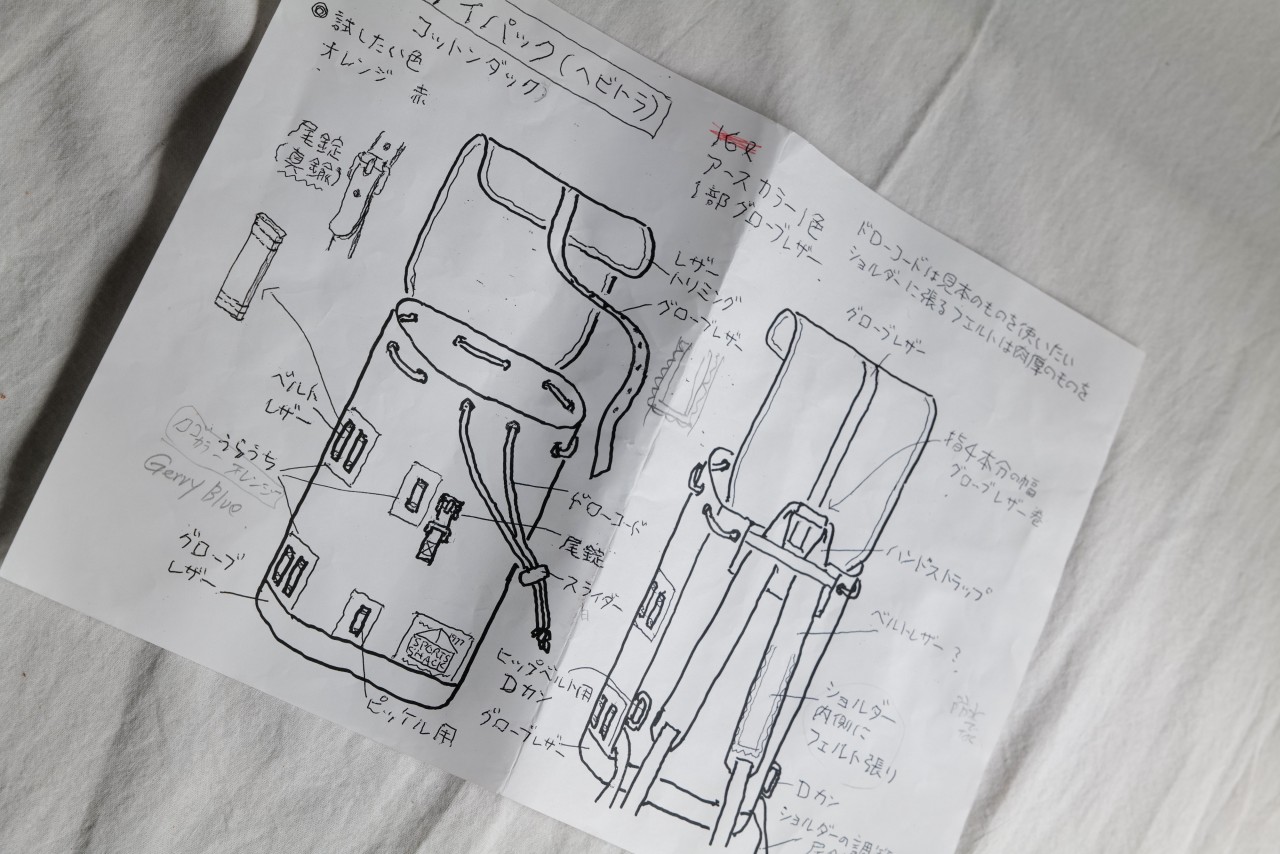 イパック(ヘビトラ)
コットンダック)
◎試したい色
オレンジ 赤
尾錠
(真鍮)
アースカラー1色
1部グローブレザー
ドローコードは見本のものを使いたい
ショルダーに張るフェルトは肉厚のものを
レザー
トリミング
グローブレザー
グローブレザー
ベルト
レザー
うらうち
オレンジ
Gerry Blue
グローブ
レザー
ドローコード
尾錠
スライダー
SPORTS
SHACK
ピッケル用
ヒップベルト用
Dカン
グローブレザー
指4本分の幅
グローブレザー巻
ハンドストラップ
ベルトレザー?
ショルダー
内側に
フェルト張り
Dカン
ショルダーの調